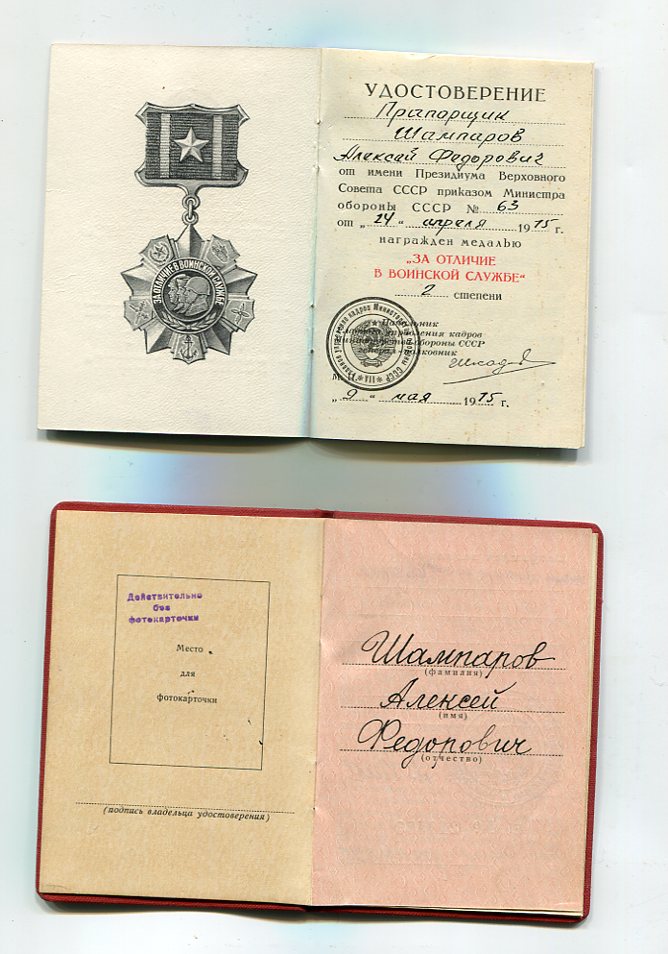 ЗА ОТЛИЧИЕ В ВОИНСКОЙ СЛУЖБЕ
УДОСТОВЕРЕНИЕ
Прапорщик
Шампаров
Алексей Федорович
от имени Президиума Верховного
Совета СССР приказом Министра
обороны СССР № 63
от „24“ апреля 1975 г.
награжден медалью
„ЗА ОТЛИЧИЕ
В ВОИНСКОЙ СЛУЖБЕ“
2 степени
Начальник
управления кадров
Министерства обороны СССР
генерал-полковник
М
„9“ мая 1975 г.
Действительно
без
фотокарточки
Место
для
фотокарточки
(подпись владельца удостоверения)
Шампаров
(фамилия)
Алексей
(имя)
Федорович
(отчество)